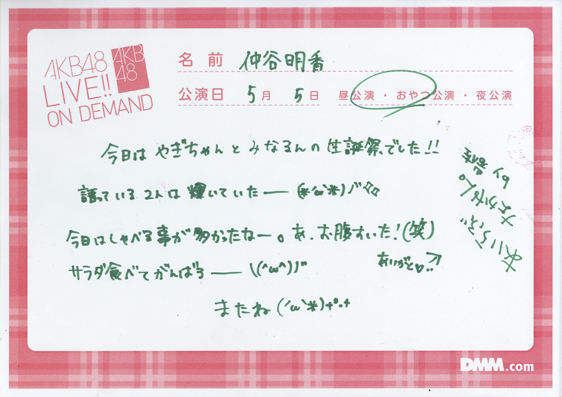 AKB48
LIVE!!
ON DEMAND
AKB
48
名 前 仲谷明香
公演日 5月 5日 昼公演・おやつ公演・夜公演
今日は やぎちゃんと みなるんの 生誕祭でした!!
踊っている2人は 輝いていたー (*'ω'*)ﾉ"
今日はしゃべる事が多かったなー。あ、お腹すいた!(笑)
サラダ食べてがんばろー \(^ω^)ﾉ"
ありがと♡
またね ('ω'*)
なかなん。
by
DMM.com